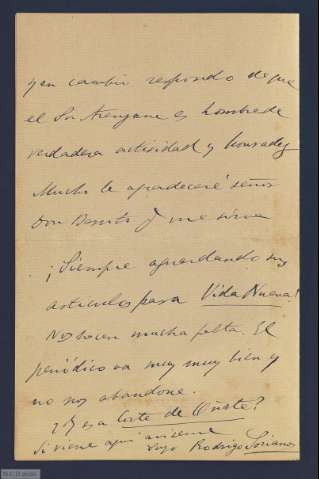 y en cambio respondo de que
el Sr. Arengana es hombre de
verdadera actividad y honradez
Mucho le agradeceré señor
Don Benito y me sirva
¡Siempre aguardando sus
artículos para Vida Nueva!
Nos hacen mucha falta. El
periódico va muy muy bien y
no nos abandone.
¿Y esa Corte de Oñate?
Si viene aquí avíseme
Suyo Rodrigo Soriano